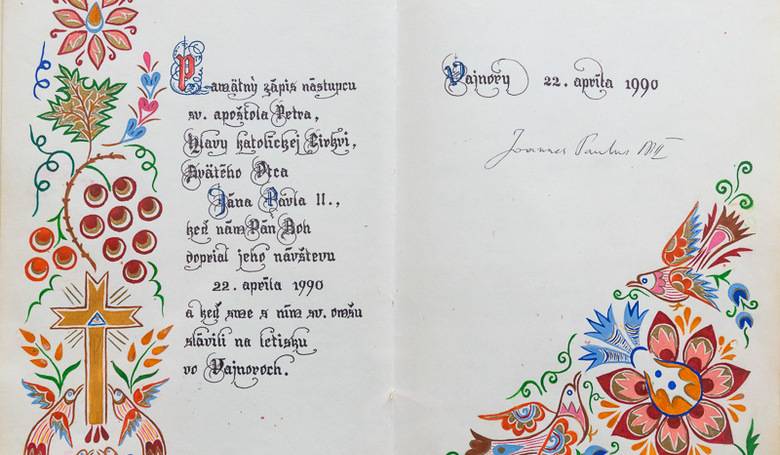 Pamätný zápis nástupcu
sv. apoštola Petra,
Hlavy katolíckej Cirkvi,
Svätého Otca
Jána Pavla II.,
keď nám Pán Boh
doprial jeho návštevu
22. apríla 1990
a keď sme s ním sv. omšu
slávili na letisku
vo Vajnoroch.
Vajnory 22. apríla 1990
Joannes Paulus PP II